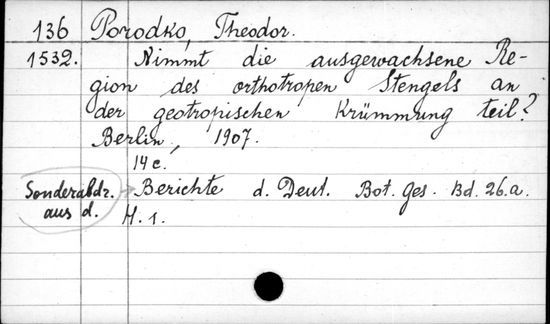 136 Porodko, Theodor.
1532. Nimmt die ausgewachsene Re-
gion des orthotropen Stengels an
der geotropischen Krümmung teil?
Berlin, 1907.
14 c.
Sonderabdr. Berichte d. Deut. Bot. Ges. Bd. 26.a.
aus d. H. 1.